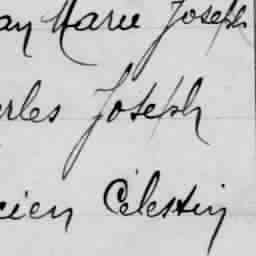 an Marie Joseph
rles Joseph
cien Célestin